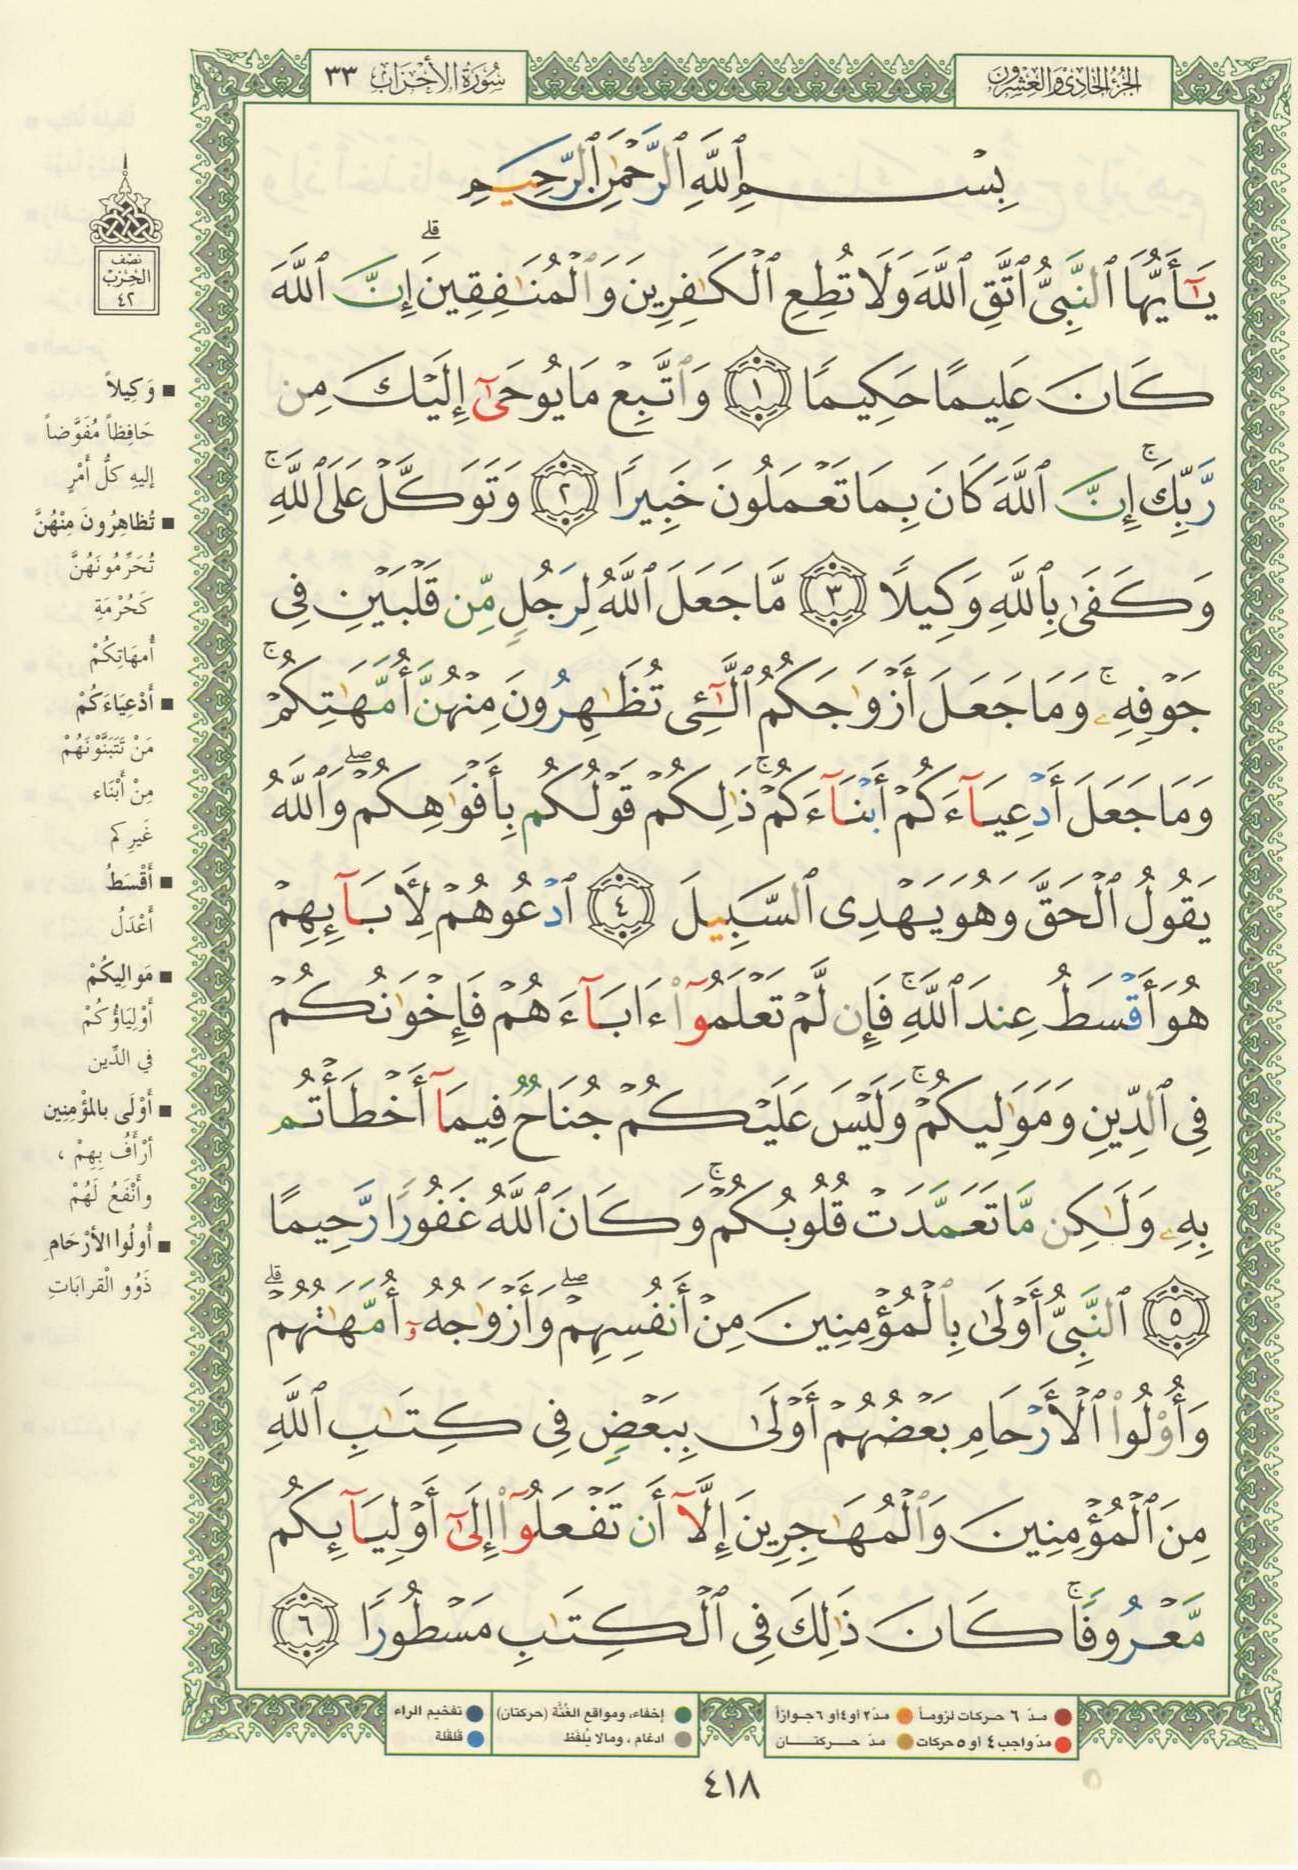 الجزء الحادي والعشرون
سورة الأحزاب ٣٣
بِسْمِ ٱللَّهِ ٱلرَّحْمَٰنِ ٱلرَّحِيمِ
يَٰٓأَيُّهَا ٱلنَّبِىُّ ٱتَّقِ ٱللَّهَ وَلَا تُطِعِ ٱلْكَٰفِرِينَ وَٱلْمُنَٰفِقِينَ ۗ إِنَّ ٱللَّهَ
كَانَ عَلِيمًا حَكِيمًا ١ وَٱتَّبِعْ مَا يُوحَىٰٓ إِلَيْكَ مِن
رَّبِّكَ ۚ إِنَّ ٱللَّهَ كَانَ بِمَا تَعْمَلُونَ خَبِيرًا ٢ وَتَوَكَّلْ عَلَى ٱللَّهِ ۚ
وَكَفَىٰ بِٱللَّهِ وَكِيلًا ٣ مَّا جَعَلَ ٱللَّهُ لِرَجُلٍ مِّن قَلْبَيْنِ فِى
جَوْفِهِۦ ۚ وَمَا جَعَلَ أَزْوَٰجَكُمُ ٱلَّٰٓـِٔى تُظَٰهِرُونَ مِنْهُنَّ أُمَّهَٰتِكُمْ ۚ
وَمَا جَعَلَ أَدْعِيَآءَكُمْ أَبْنَآءَكُمْ ۚ ذَٰلِكُمْ قَوْلُكُم بِأَفْوَٰهِكُمْ ۖ وَٱللَّهُ
يَقُولُ ٱلْحَقَّ وَهُوَ يَهْدِى ٱلسَّبِيلَ ٤ ٱدْعُوهُمْ لِءَابَآئِهِمْ
هُوَ أَقْسَطُ عِندَ ٱللَّهِ ۚ فَإِن لَّمْ تَعْلَمُوٓا۟ ءَابَآءَهُمْ فَإِخْوَٰنُكُمْ
فِى ٱلدِّينِ وَمَوَٰلِيكُمْ ۚ وَلَيْسَ عَلَيْكُمْ جُنَاحٌ فِيمَآ أَخْطَأْتُم
بِهِۦ وَلَٰكِن مَّا تَعَمَّدَتْ قُلُوبُكُمْ ۚ وَكَانَ ٱللَّهُ غَفُورًا رَّحِيمًا
٥ ٱلنَّبِىُّ أَوْلَىٰ بِٱلْمُؤْمِنِينَ مِنْ أَنفُسِهِمْ ۖ وَأَزْوَٰجُهُۥٓ أُمَّهَٰتُهُمْ ۗ
وَأُو۟لُوا۟ ٱلْأَرْحَامِ بَعْضُهُمْ أَوْلَىٰ بِبَعْضٍ فِى كِتَٰبِ ٱللَّهِ
مِنَ ٱلْمُؤْمِنِينَ وَٱلْمُهَٰجِرِينَ إِلَّآ أَن تَفْعَلُوٓا۟ إِلَىٰٓ أَوْلِيَآئِكُم
مَّعْرُوفًا ۚ كَانَ ذَٰلِكَ فِى ٱلْكِتَٰبِ مَسْطُورًا ٦
نصف
الحزب
٤٢
وَكِيلاً
حَافِظاً مُفَوَّضاً
إليهِ كلُّ أَمْرٍ
تُظاهِرُونَ مِنْهُنَّ
تُحَرِّمُونَهُنَّ
كَحُرْمَةِ
أُمهَاتِكُمْ
أَدْعِيَاءَكُمْ
مَنْ تَتَبَنَّوْنَهُمْ
مِنْ أَبْنَاء
غَيرِكم
أَقْسَطُ
أَعْدَلُ
مَوالِيكُمْ
أَوْلِيَاؤُكُمْ
في الدِّين
أَوْلَى بالمُؤْمِنِين
أَرْأَفُ بِهِمْ ،
وأَنْفَعُ لَهُمْ
أُولُوا الأرْحَامِ
ذَوُو الْقرابَاتِ
مدّ ٦ حركات لزوماً مدّ ٢ أو ٤ أو ٦ جوازاً
مدّ واجب ٤ أو ٥ حركات مدّ حركتان
إخفاء، ومواقع الغُنَّة (حركتان)
ادغام ، ومالا يُلفَظ
تفخيم الراء
قلقلة
٤١٨